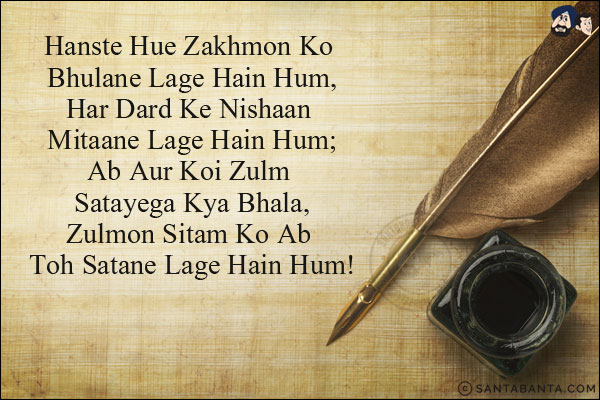 Hanste Hue Zakhmon Ko
Bhulane Lage Hain Hum,
Har Dard Ke Nishaan
Mitaane Lage Hain Hum;
Ab Aur Koi Zulm
Satayega Kya Bhala,
Zulmon Sitam Ko Ab
Toh Satane Lage Hain Hum!
© SANTABANTA.COM